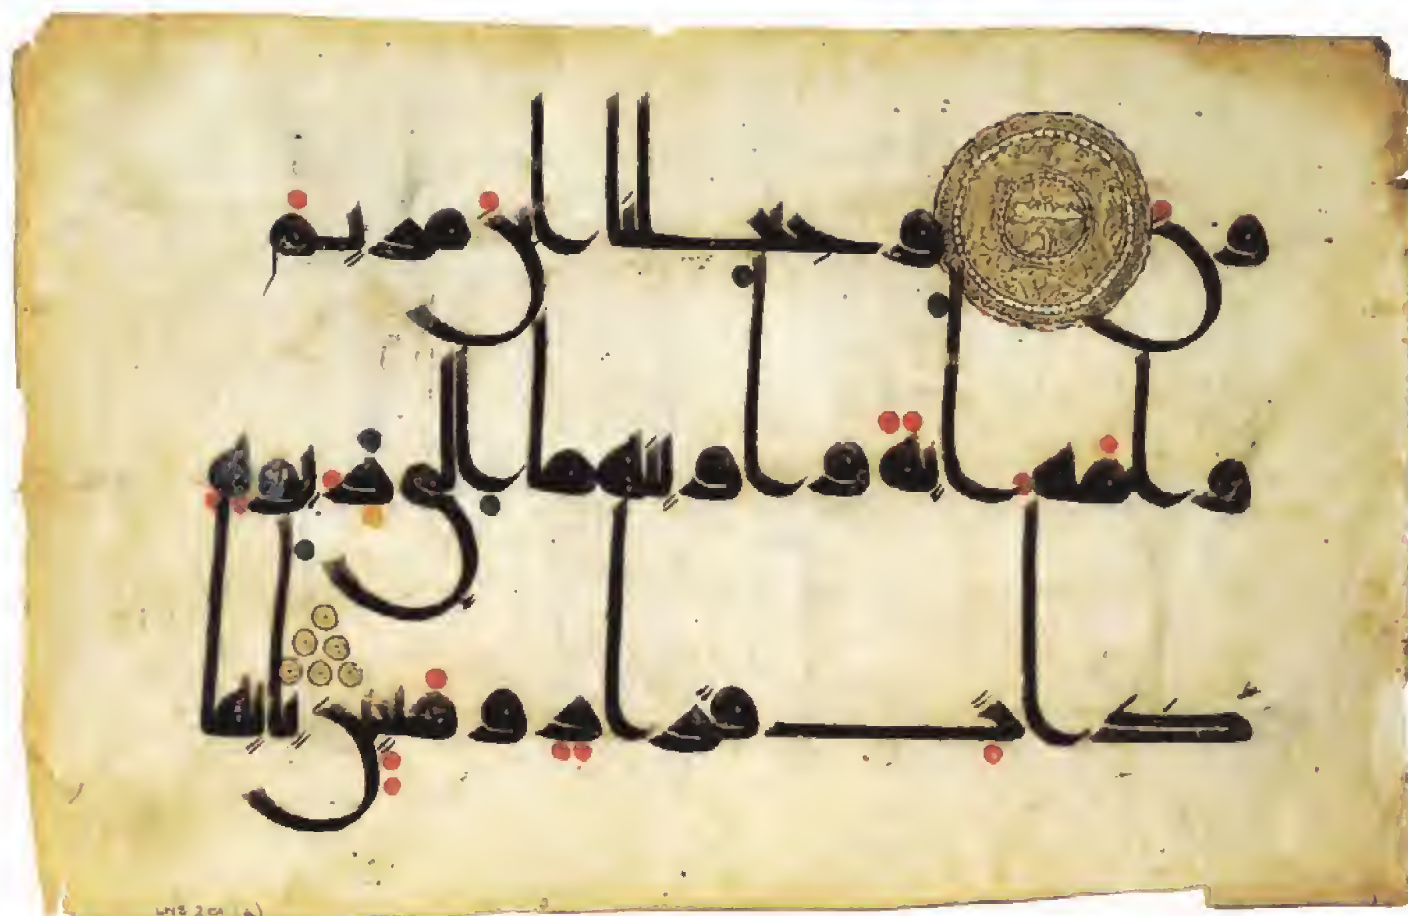 ون وجعلنا ابن مريم
وامه اية واوينهما الى ربوة
ذات قرار ومعين يايها